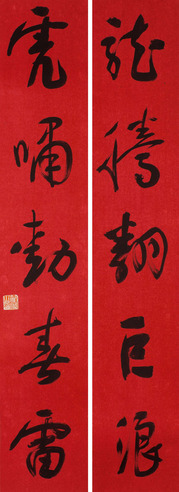 龍騰翻巨浪
虎嘯動春雷